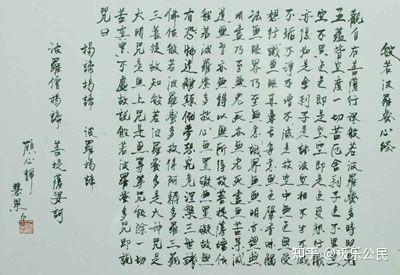 般若波羅蜜心經
觀自在菩薩行深般若波羅蜜多時照見
五蘊皆空度一切苦厄舍利子色不異
空空不異色色即是空空即是色受想行識
亦復如是舍利子是諸法空相不生不滅
不垢不淨不增不減是故空中無色無受
想行識無眼耳鼻舌身意無色聲香味觸
法無眼界乃至無意識界無無明亦無無
明盡乃至無老死亦無老死盡無苦集滅
道無智亦無得以無所得故菩提薩埵依
般若波羅蜜多故心無罣礙無罣礙故無
有恐怖遠離顛倒夢想究竟涅槃三世諸
佛依般若波羅蜜多故得阿耨多羅三藐
三菩提故知般若波羅蜜多是大神咒是
大明咒是無上咒是無等等咒能除一切
苦真實不虛故說般若波羅蜜多咒即說
咒曰
揭諦揭諦 波羅揭諦
波羅僧揭諦 菩提薩婆訶
知乎 @极乐公民